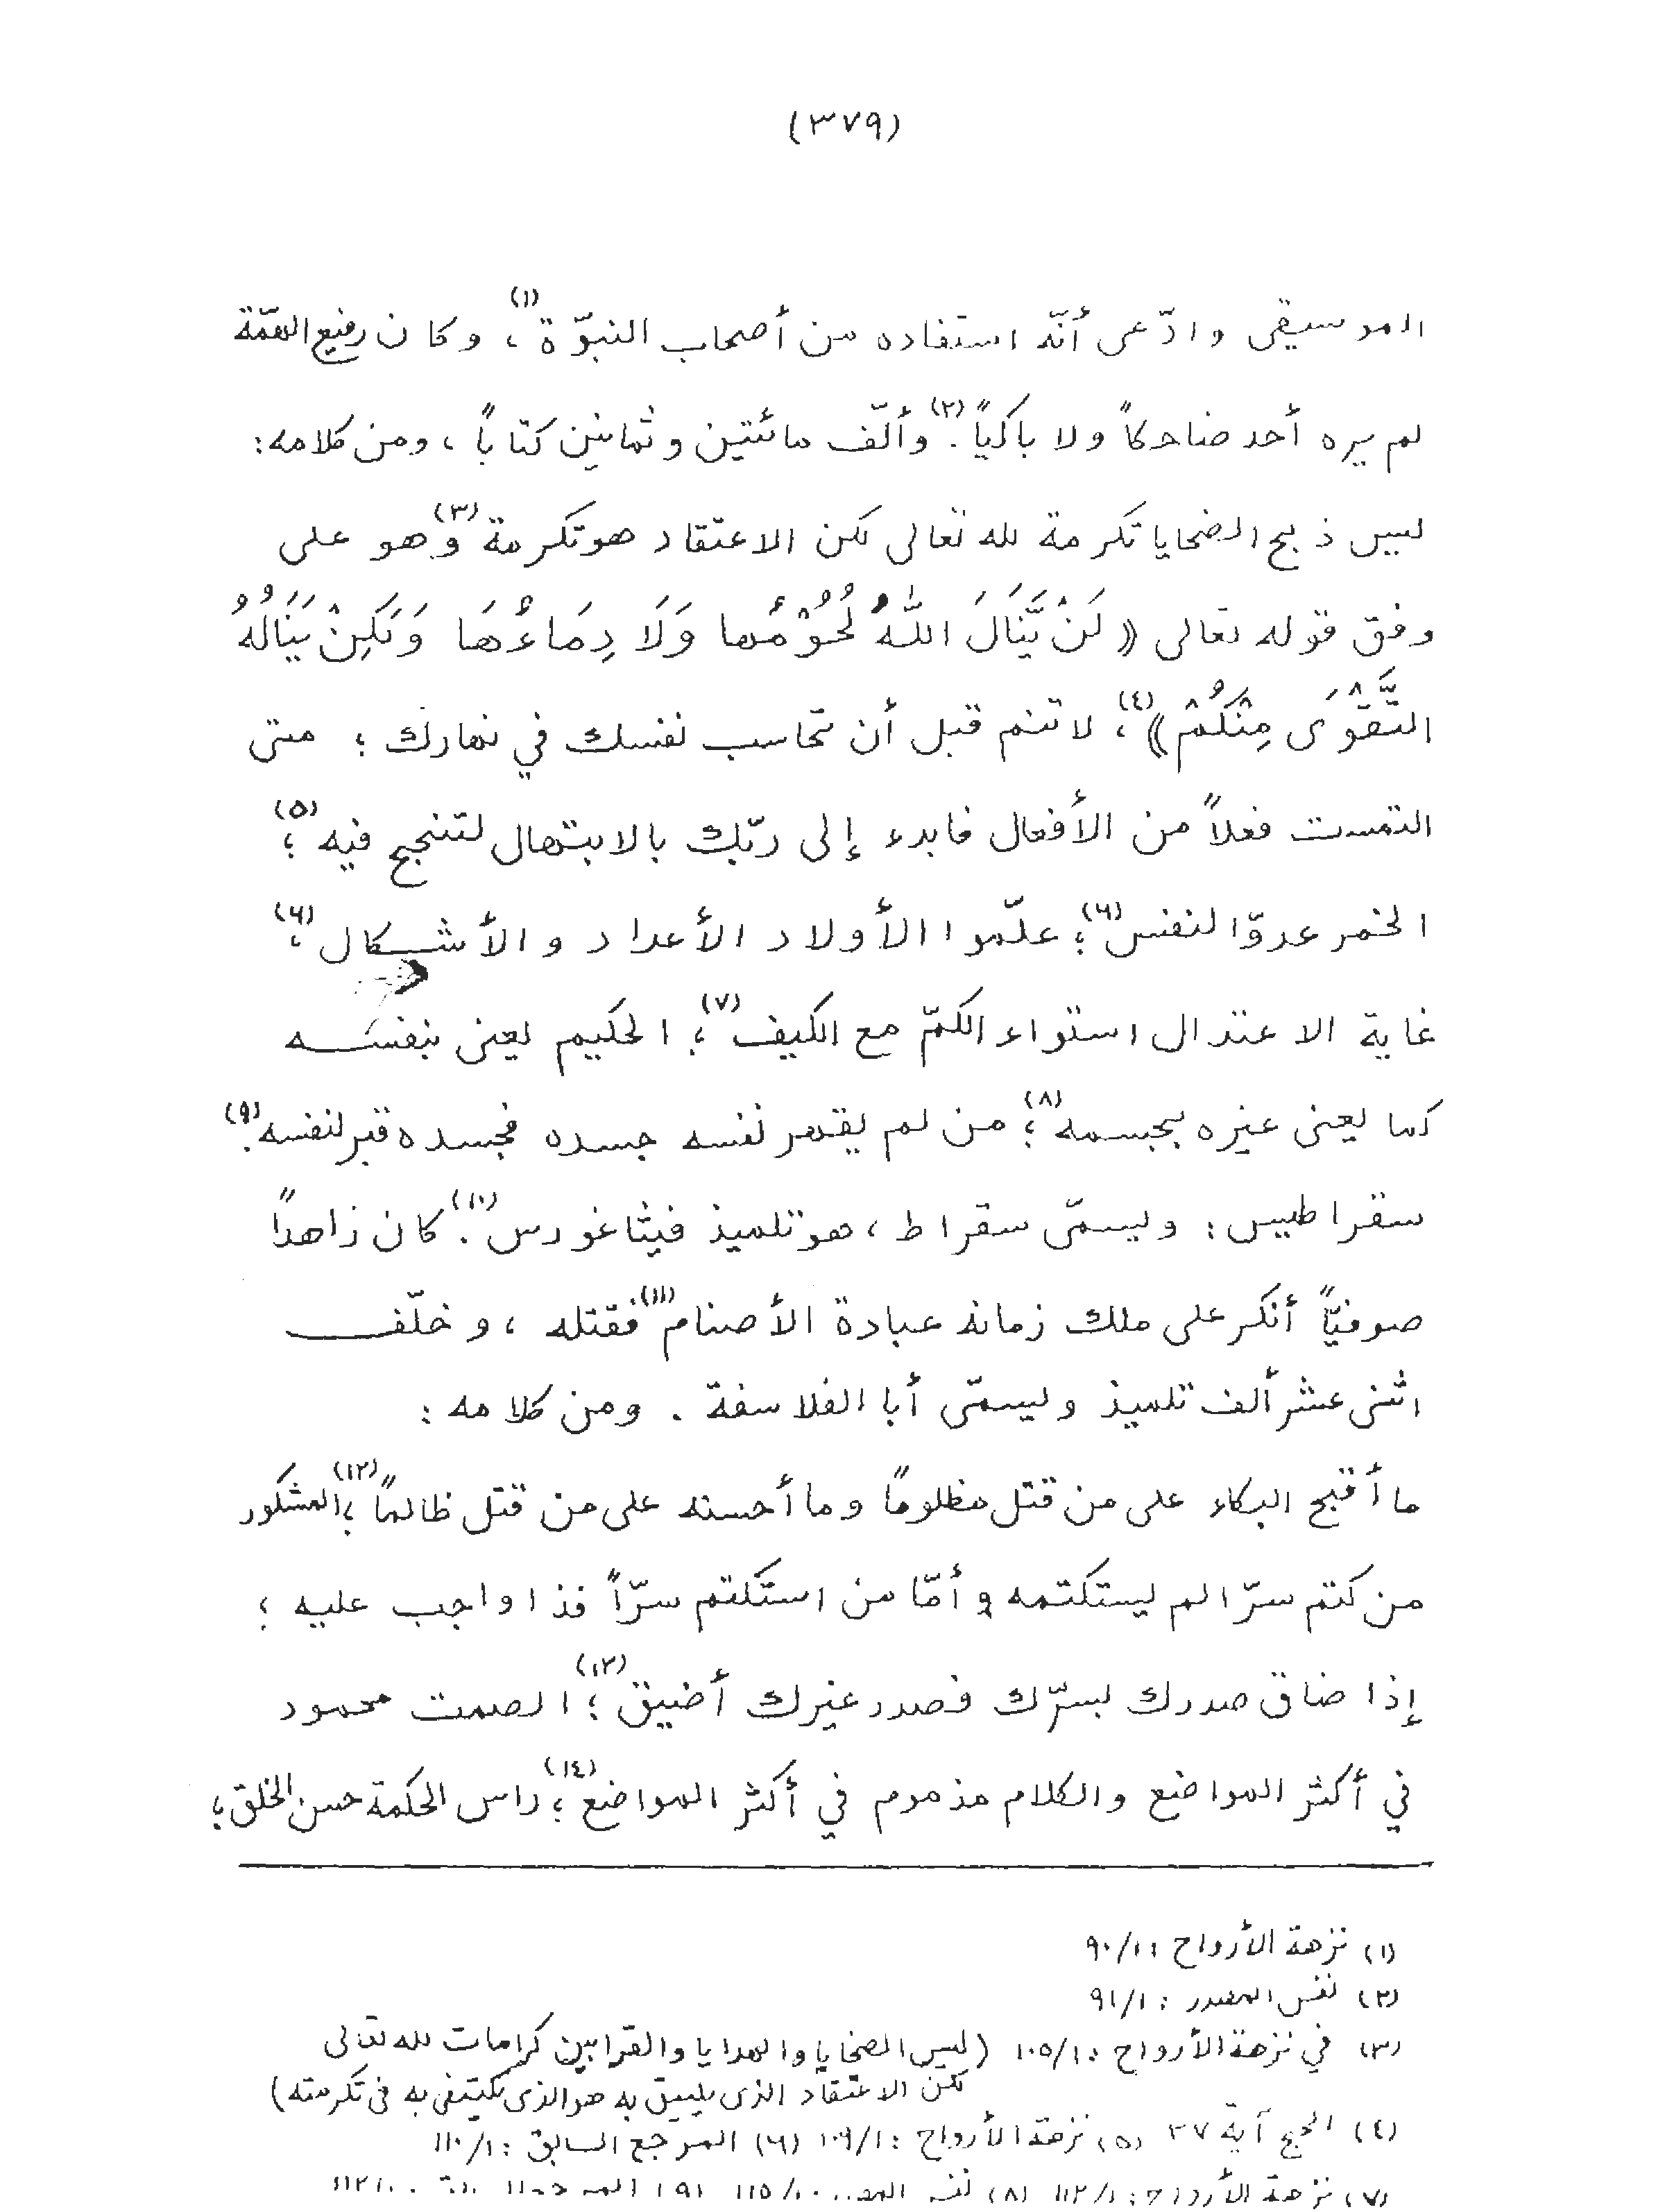 (٣٧٩)
الموسيقى وادّعى أنّه استفاده من أصحاب النبوّة(١)، وكان رفيع الهمّة
لم يره أحد ضاحكاً ولا باكياً(٢). وألّف مائتين وثمانين كتاباً، ومن كلامه:
ليس ذبح الضحايا تكرمة لله تعالى لكن الاعتقاد هو تكرمة(٣) وهو على
وفق قوله تعالى ((لَنْ يَّنَالَ اللّٰهُ لُحُوْمُها وَلَا دِمَاءُهَا وَلَكِنْ يَنَالُهُ
التَّقْوَى مِنْكُمْ))(٤)، لا تنم قبل أن تحاسب نفسك في نهارك؛ متى
التمست فعلاً من الأفعال فابدء إلى ربّك بالابتهال لتنجح فيه(٥)؛
الخمر عدوّ النفس(٦)؛ علّموا الأولاد الأعداد والأشكال(٦)؛
غاية الاعتدال استواء الكمّ مع الكيف(٧)؛ الحكيم يعنى بنفسه
كما يعنى غيره بجسمه(٨)؛ من لم يقهر نفسه جسده فجسده قبر لنفسه(٩).
سقراطيس: ويسمّى سقراط، هو تلميذ فيثاغورس(١٠). كان زاهداً
صوفيّاً أنكر على ملك زمانه عبادة الأصنام(١١) فقتله، وخلّف
اثنى عشر ألف تلميذ ويسمّى أبا الفلاسفة. ومن كلامه:
ما أقبح البكاء على من قتل مظلوماً وما أحسنه على من قتل ظالماً(١٢)؛ المشكور
من كتم سرّا لم يستكتمه وأمّا من استكتم سرّاً فذا واجب عليه؛
إذا ضاق صدرك بسرّك فصدر غيرك أضيق(١٣)؛ الصمت محمود
في أكثر المواضع والكلام مذموم في أكثر المواضع(١٤)؛ راس الحكمة حسن الخلق؛
(١) نزهة الأرواح: ٩٠/١
(٢) نفس المصدر: ٩١/١
(٣) في نزهة الأرواح: ١٠٥/١ (ليس الضحايا والهدايا والقرابين كرامات لله تعالى
لكن الاعتقاد الذى يليق به هو الذى يكتفى به فى تكرمته)
(٤) الحج آية ٣٧ (٥) نزهة الأرواح: ١٠٩/١ (٦) المرجع السابق: ١١٠/١
(٧) نزهة الأرواح: ١١٢/١ (٨) نفس المصدر ١١٥/١ (٩)